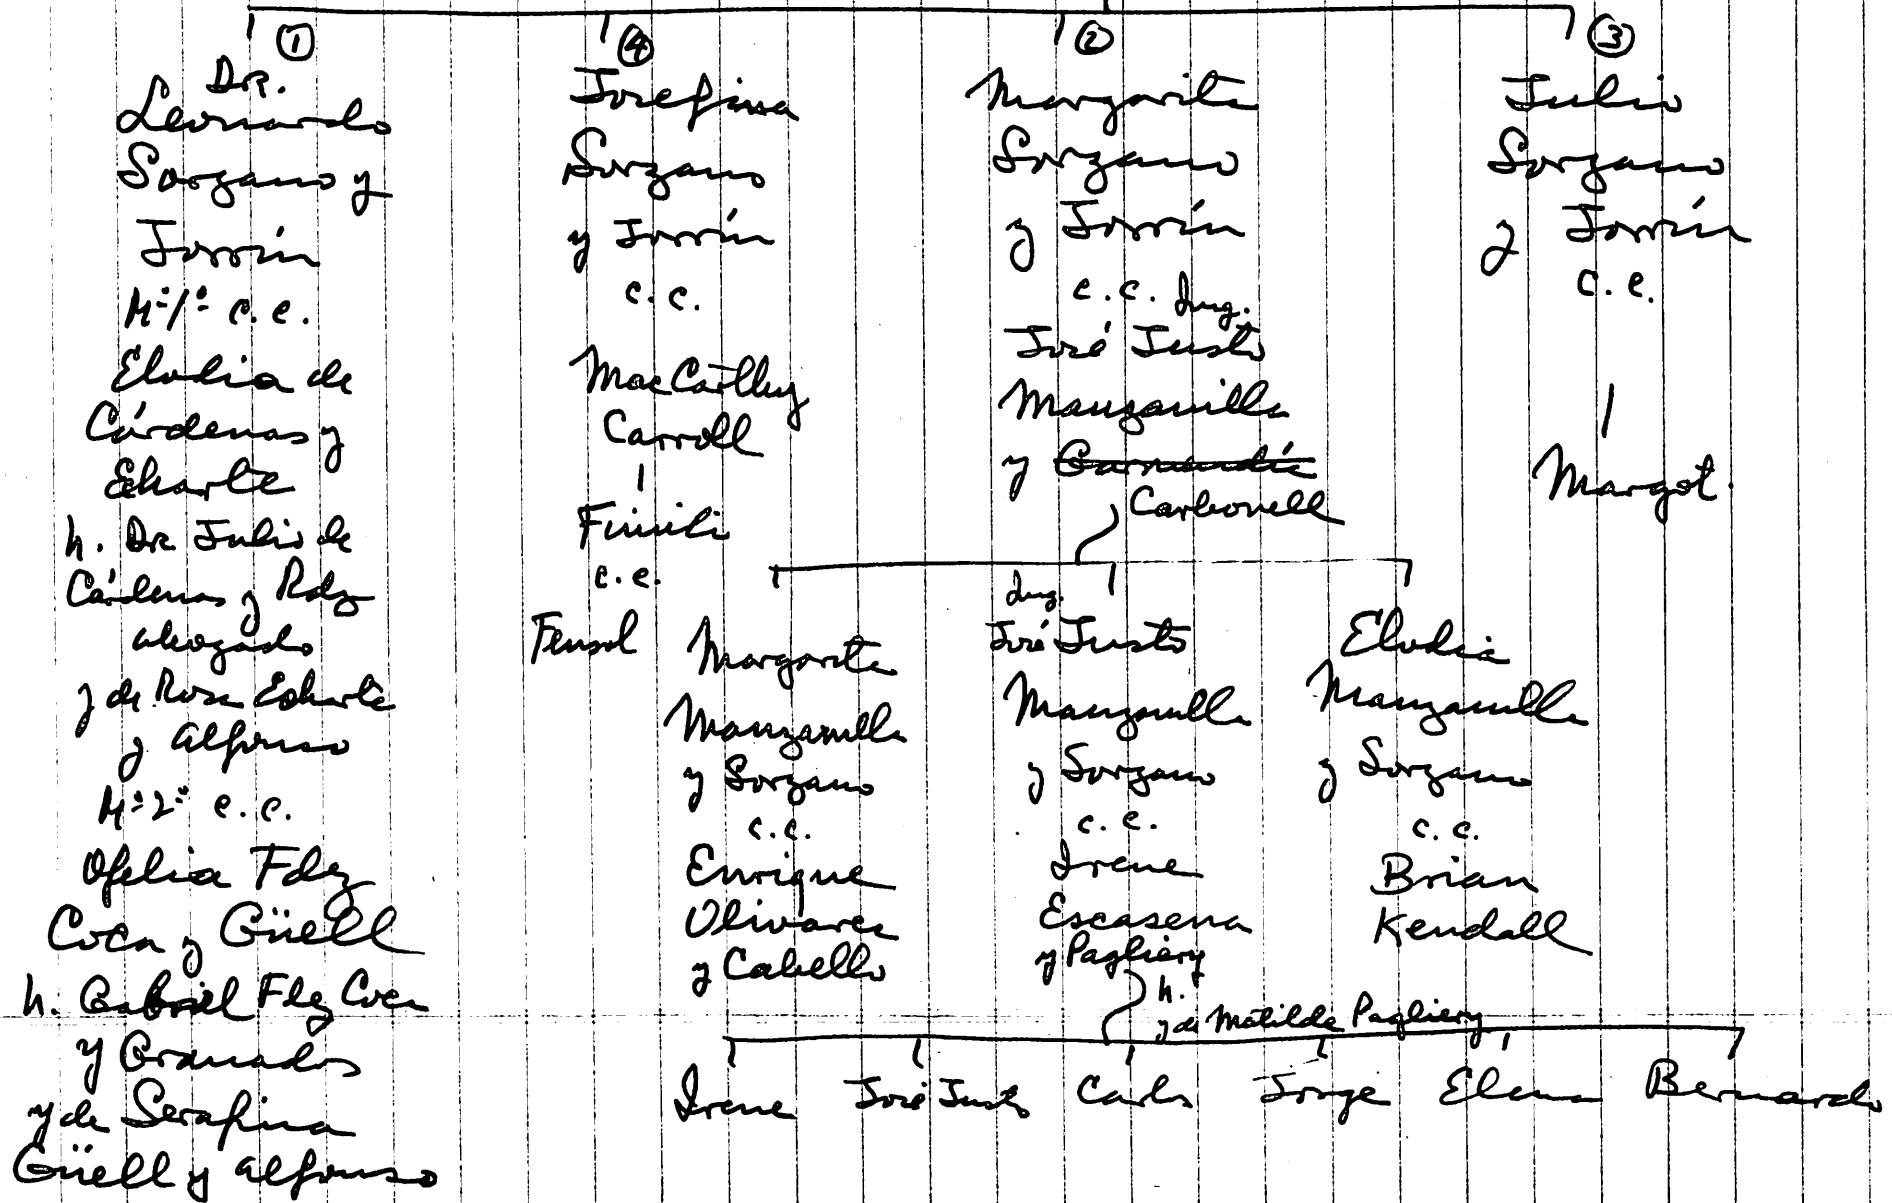 ①
Dr.
Leonardo
Sorzano y
Jorrín
M=1º c.c.
Elodia de
Cárdenas y
Echarte
h. Dr Julio de
Cárdenas y Rdgz
abogado
y de Rosa Echarte
y Alfonso
M=2º c.c.
Ofelia Fdez
Coca y Güell
h. Gabriel Fdez Coca
y Granados
y de Serafina
Güell y Alfonso
④
Josefina
Sorzano
y Jorrín
c.c.
MacCarthy
Carroll
Finili
c.c.
②
Margarita
Sorzano
y Jorrín
c.c. Ing.
José Justo
Manzanilla
y Garmendía
Carbonell
③
Julio
Sorzano
y Jorrín
c.c.
Margot
Margarita
Manzanilla
y Sorzano
c.c.
Enrique
Olivares
y Cabello
Ing.
José Justo
Manzanilla
y Sorzano
c.c.
Irene
Escasena
y Pagliery
h.
y de Matilde Pagliery
Elodia
Manzanilla
y Sorzano
c.c.
Brian
Kendall
Irene José Justo Carlos Jorge Elena Bernardo